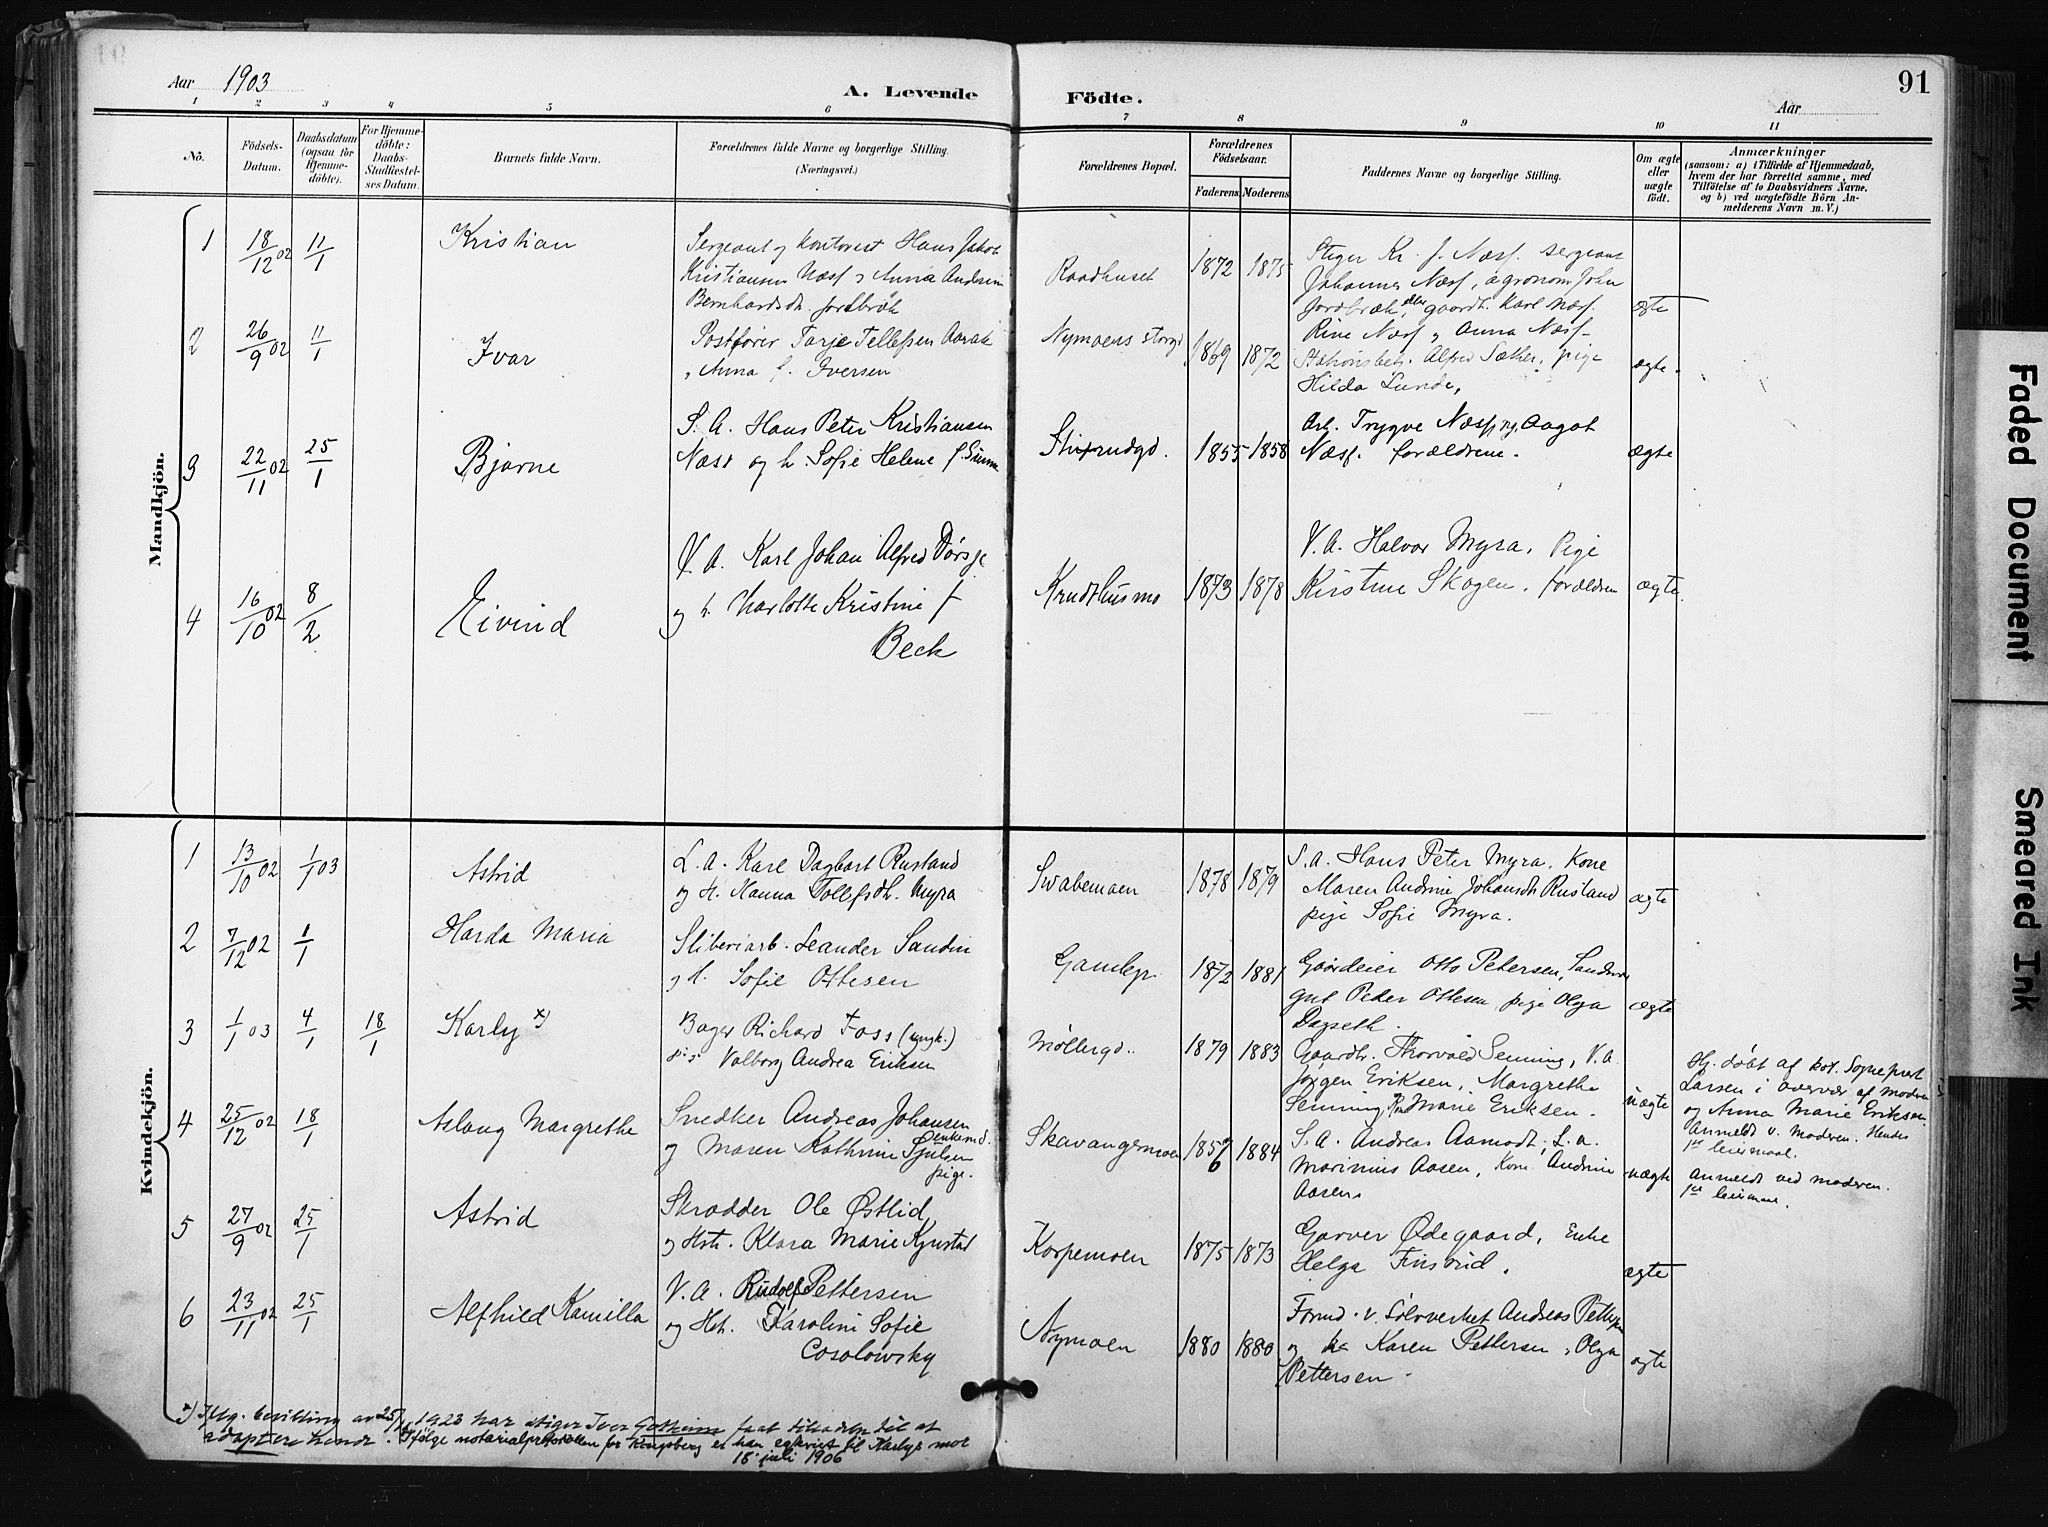 Aar 1903
A. Levende
Födte.
91
Aar
1 2 3 4 5 6 7 8 9 10 11
No.
Födsels-
Datum.
Daabsdatum
(ogsaa for
Hjemme-
döbte).
For Hjemme-
döbte:
Daabs-
Stadfæstel-
ses Datum.
Barnets fulde Navn.
Forældrenes fulde Navne og borgerlige Stilling.
(Næringsvei.)
Forældrenes Bopæl.
Forældrenes
Födselsaar.
Faderens Moderens
Faddernes Navne og borgerlige Stilling.
Om ægte
eller
uægte
födt.
Anmærkninger
(saasom: a) i Tilfælde af Hjemmedaab,
hvem der har forrettet samme, med
Tilföielse af to Daabsvidners Navne,
og b) ved uægtefödte Börn An-
melderens Navn m. V.)
Mandkjön.
1 18/12 02 11/1 Kristian
Sergeant og kontorist Hans Jakob
Kristiansen Næss og Anna Andrine
Bernhardsdtr. Jordbræk
Raadhuset 1872 1875
Stiger Kr. J. Næss. sergeant
Johannes Næss, agronom John
Jordbræk, gaardb. Karl Næss.
ægte
2 26/9 02 11/1 Ivar
Postfører Tarje Tellefsen Aarak
, Anna f. Iversen
Nymoens storgd 1869 1872
Rine Næss og Anna Næss
Stationsbetj. Alfred Sæther, pige
Hilda Lunde,
ægte.
3 22/11 02 25/1 Bjarne
S. A. Hans Peter Kristiansen
Næss og h. Sofie Helene f.
1855 1858
Arb. Trygve Næss og Aagot
Næss. forældrene.
ægte
4 16/10 02 8/2 Eivind
V. A. Karl Johan Alfred Dørsje
og h. Charlotte Kristine f
Beck
1873 1878
V. A. Halvor Myra, Pige
Kirstine Skogen, forældren
ægte.
Kvindekjön.
1 13/10 02 1/1 03 Astrid
L. A. Karl Dagbart Rustand
og H. Nanna Tollefsdtr. Myra
Svabemoen 1878 1879
S. A. Hans Peter Myra, Kone
Maren Andrine Johansdtr Rustand
pige Sofie Myra.
ægte
2 7/12 02 1/1 Harda Maria
Sliberiarb. Leander Sandin
og h. Sofie Ottesen
Gamlegr 1872 1881
Gaardeier Otto Petersen,
gut Peder Ottesen pige Olga
Dagseth.
ægte
3 1/1 03 4/1 18/1 Karly x)
Bager Richard Foss (ungk.)
pige Valborg Andrea Eriksen
Møllergd.. 1879 1883
Gaardbr. Thorvald Senning, V. A.
Jørgen Eriksen, Margrethe
Senning, Marie Eriksen.
uægte
Hj. døbt af kst. Sogneprest
Larsen i overvær af moderen
og Anna Marie Eriksen.
Anmeldt v. Moderen. Hendes
1ste leiermaal.
4 25/12 02 18/1 Aslaug Margrethe
Snedker Andreas Johansen
enkemd.
og Maren Kathrine Gjulsen
pige.
Skavangermoen 1856 1884
S. A. Andreas Aamodt, L. a.
Marinius Aasen, Kone Andrine
Aasen.
uægte
Anmeldt ved moderen.
1ste leiermaal.
5 27/9 02 25/1 Astrid
Skrædder Ole Østlid
og Hstr. Klara Marie Kjustad
Korpemoen 1875 1873
Garver Ødegaard, Enke
Helga Finsrud.
ægte
6 23/11 02 25/1 Alfhild Kamilla
V. A. Rudolf Pettersen
og Hst. Karolini Sofie
Cosolowsky
Nymoen 1880 1880
Formd. v. Sølvverket Andreas Pettersen
og Karen Pettersen, Olga
Pettersen.
ægte
x) Iflg. bevilling av 25/ 1923 har stiger Iver Gotheim faat tilladelse til at
adoptere hende. Ifølge notarialprotokollen for Kongsberg er han egteviet til Karlys mor
18 juli 1906
Faded Document
Smeared Ink